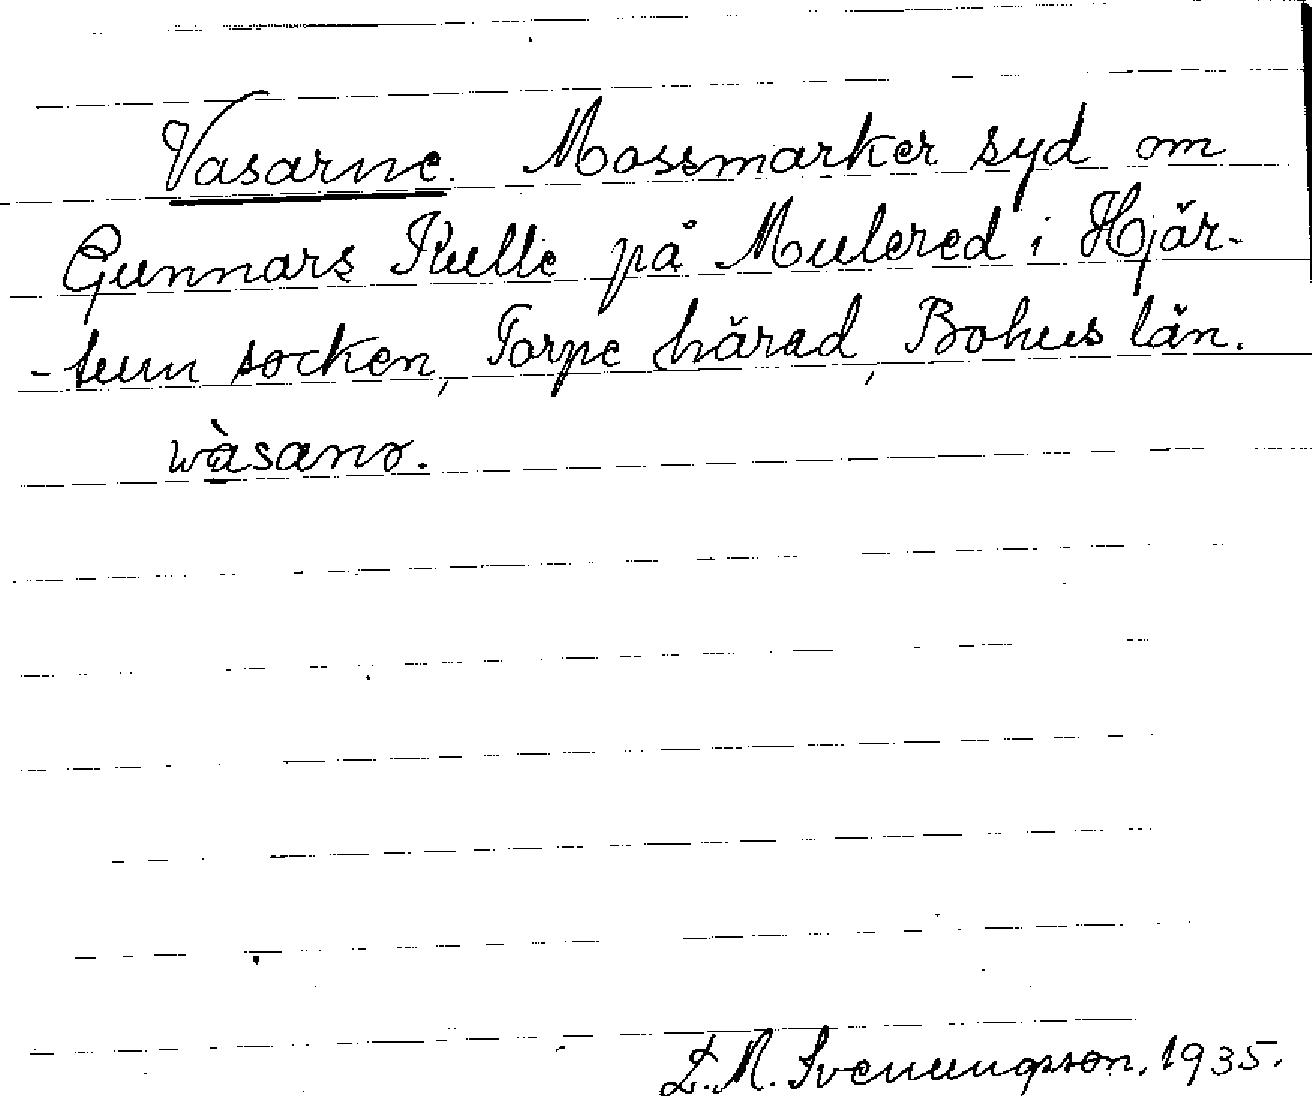 Vasarne. Mossmarker syd om
Gunnars Kulle på Mulered i Hjär-
-tum socken, Torpe härad, Bohus län.
wàsanə.
L.M. Svenungsson. 1935.